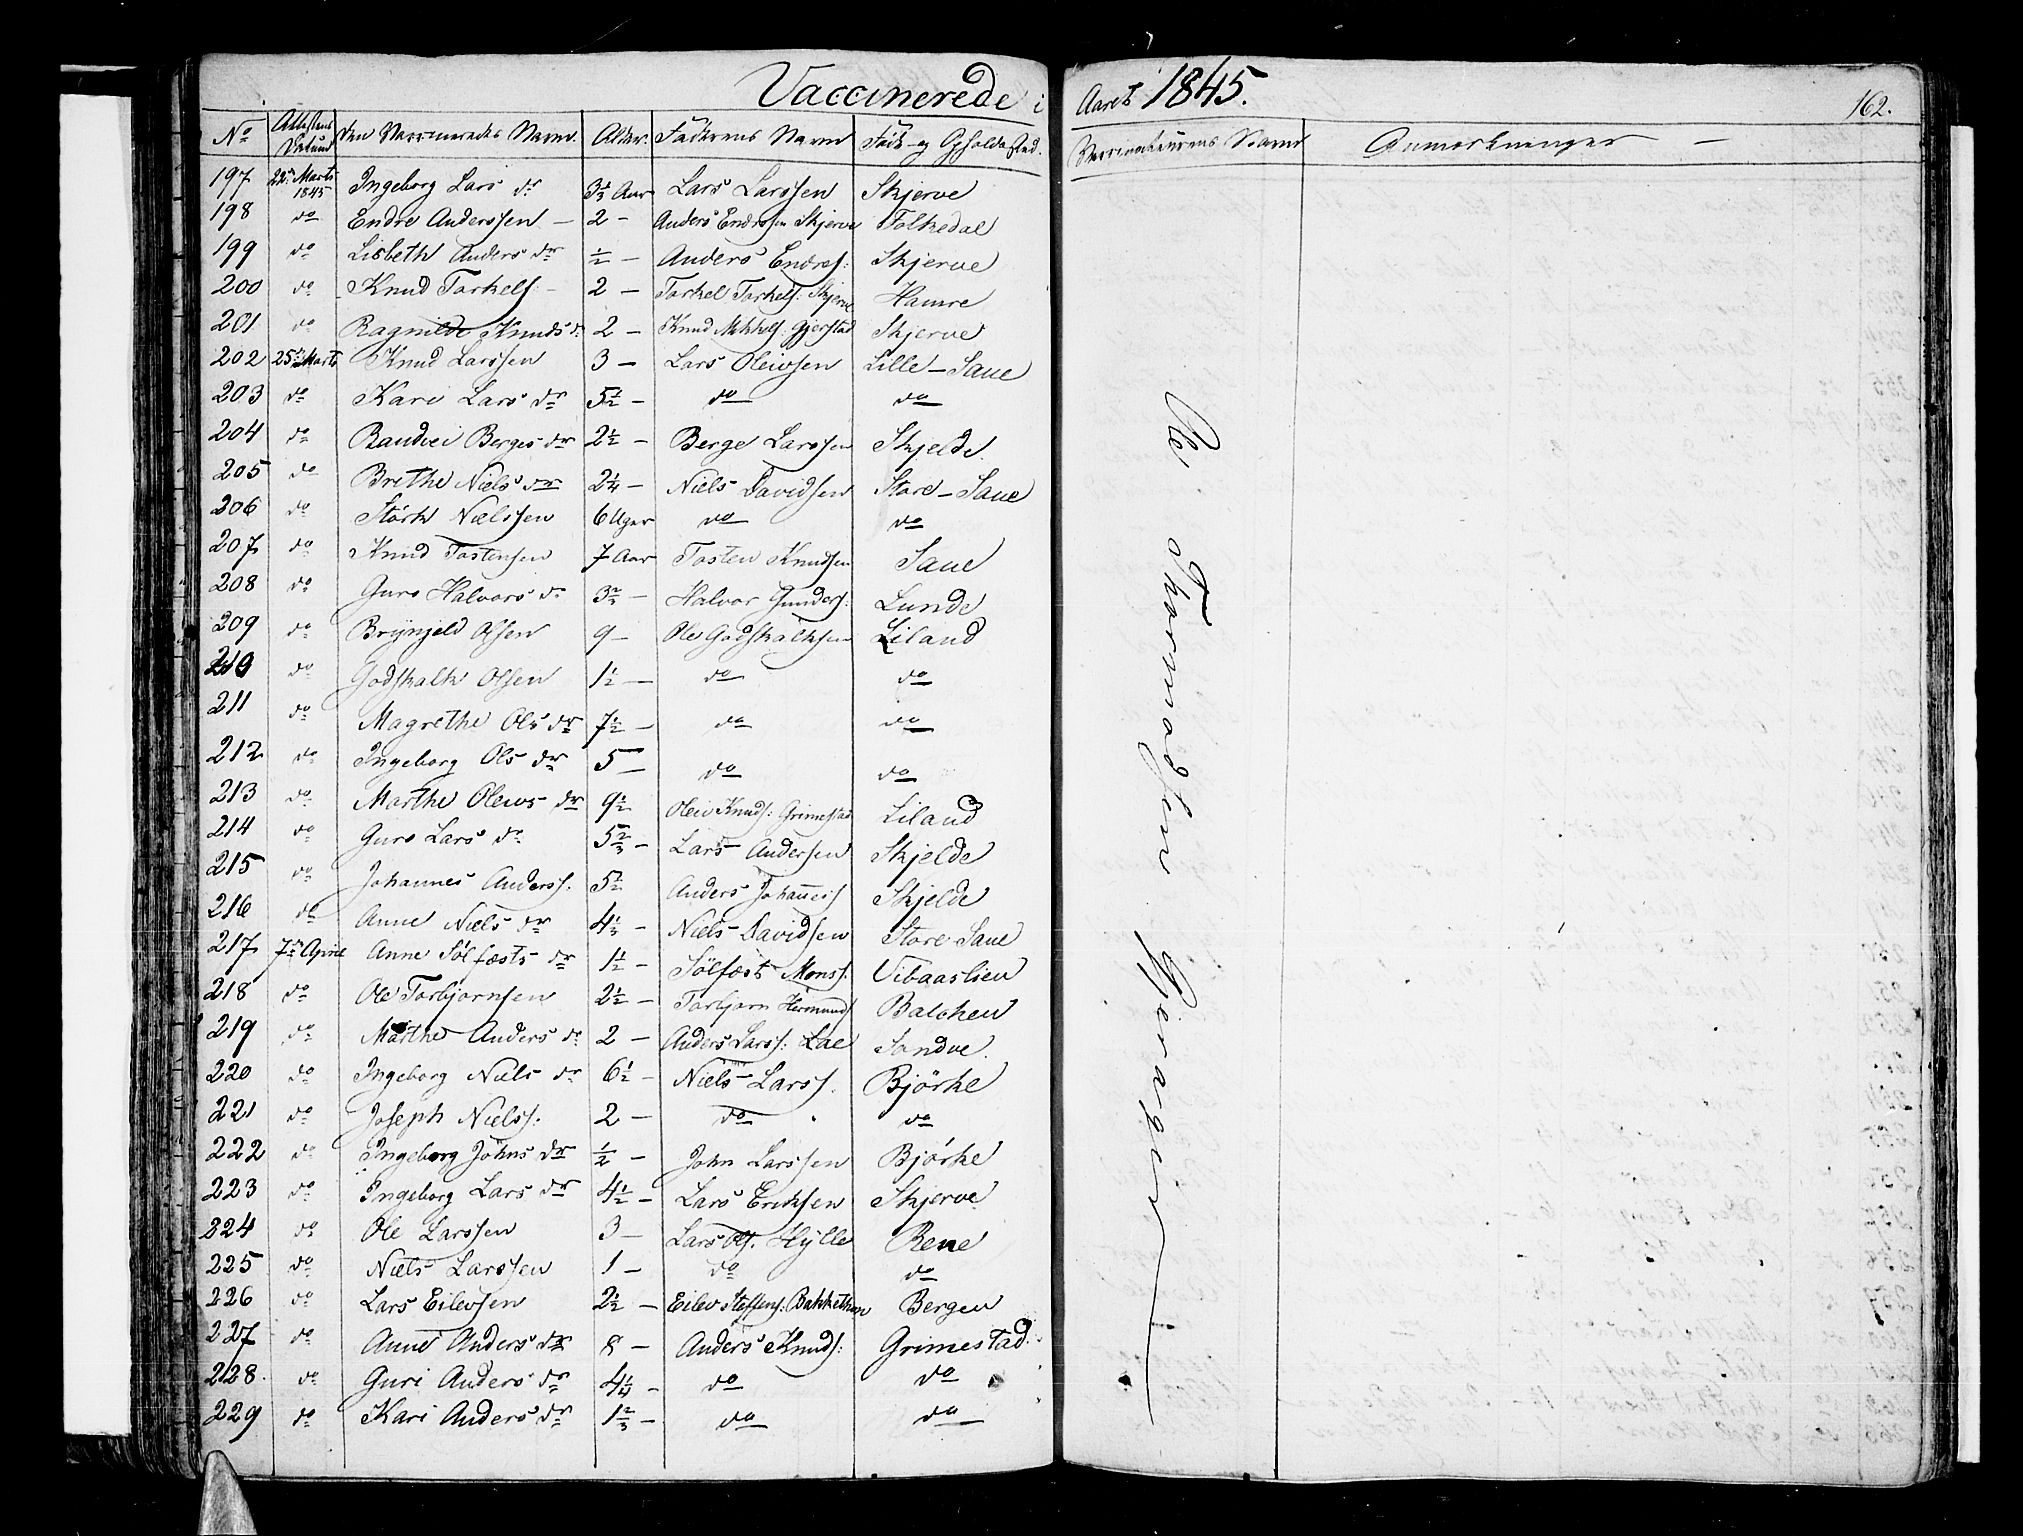 Vaccinerede i Aaret 1845.
162.
No Attestens Datum Den Vaccineredes Navn. Alder. Faderens Navn Føde- og Opholdssted. Vaccinateurens Navn Anmærkninger
197 22de Marts 1845 Ingeborg Lars dr 3 1/2 Aar Lars Larssen Skjerve
198 do Endre Anderssen 2 - Anders Endresen Skjerve Folkedal
199 do Lisbeth Anders dr 1/2 - Anders Endres: Skjerve
200 do Knud Torkels. 2 - Torkel Torkels: Skjerve Hamre
201 do Ragnilde Knuds dr 2 - Knud Gjerstad Skjerve
202 25de Marts Knud Larssen 3 - Lars Oleivsen Lille-Saue
203 do Kari Lars dr 5 1/2 - do do
204 do Randvei Berges dr 2 1/2 - Berge Larssen Skjelde
205 do Brethe Niels dr 2 1/4 - Niels Davidsen Store-Saue
206 do Størk Nielssen 6 Uger do do
207 do Knud Tostensen 7 Aar Tosten Knudsen Saue
208 do Guro Halvors dr 3 2/3 - Halvor Gunders: Lunde
209 do Brynjeld Olsen 9 - Ole Godskalksen Liland
210 do Godskalk Olsen 1 1/2 - do do
211 do Magrethe Ols dr 7 1/2 - do do
212 do Ingeborg Ols dr 5 - do do
213 do Marthe Oleivs dr 9 1/2 Oleiv Knuds: Grimestad Liland
214 do Guro Lars dr 5 2/3 - Lars Andersen Skjelde
215 do Johannes Anderss. 5 1/2 Anders Johannes Skjelde
216 do Anne Niels dr 4 1/3 - Niels Davidsen Store Saue
217 7de April Anne Sølfæsts dr 1 1/2 - Sølfæst Monss. Vibaaslien
218 do Ole Torbjørnsen 2 1/2 - Torbjørn Hermund Balchen
219 do Marthe Anders dr 2 - Anders Larss: Lae Sandve.
220 do Ingeborg Niels dr 6 1/2 - Niels Larss. Bjørke
221 do Joseph Nielss. 2 - do do
222 do Ingeborg Johns dr 1/2 - John Larssen Bjørke
223 do Ingeborg Lars dr 4 1/2 - Lars Eriksen Skjerve
224 do Ole Larssen 3 - Lars Ols. Hylle Rene
225 do Niels Larssen 1 - do do
226 do Lars Eilevsen 2 1/2 - Eilev Steffens: Bakkethun Bergen
227 do Anne Anders dr 8 - Anders Knuds: Grimestad
228 do Guri Anders dr 4 1/4 - do do
229 do Kari Anders dr 1 2/3 - do do